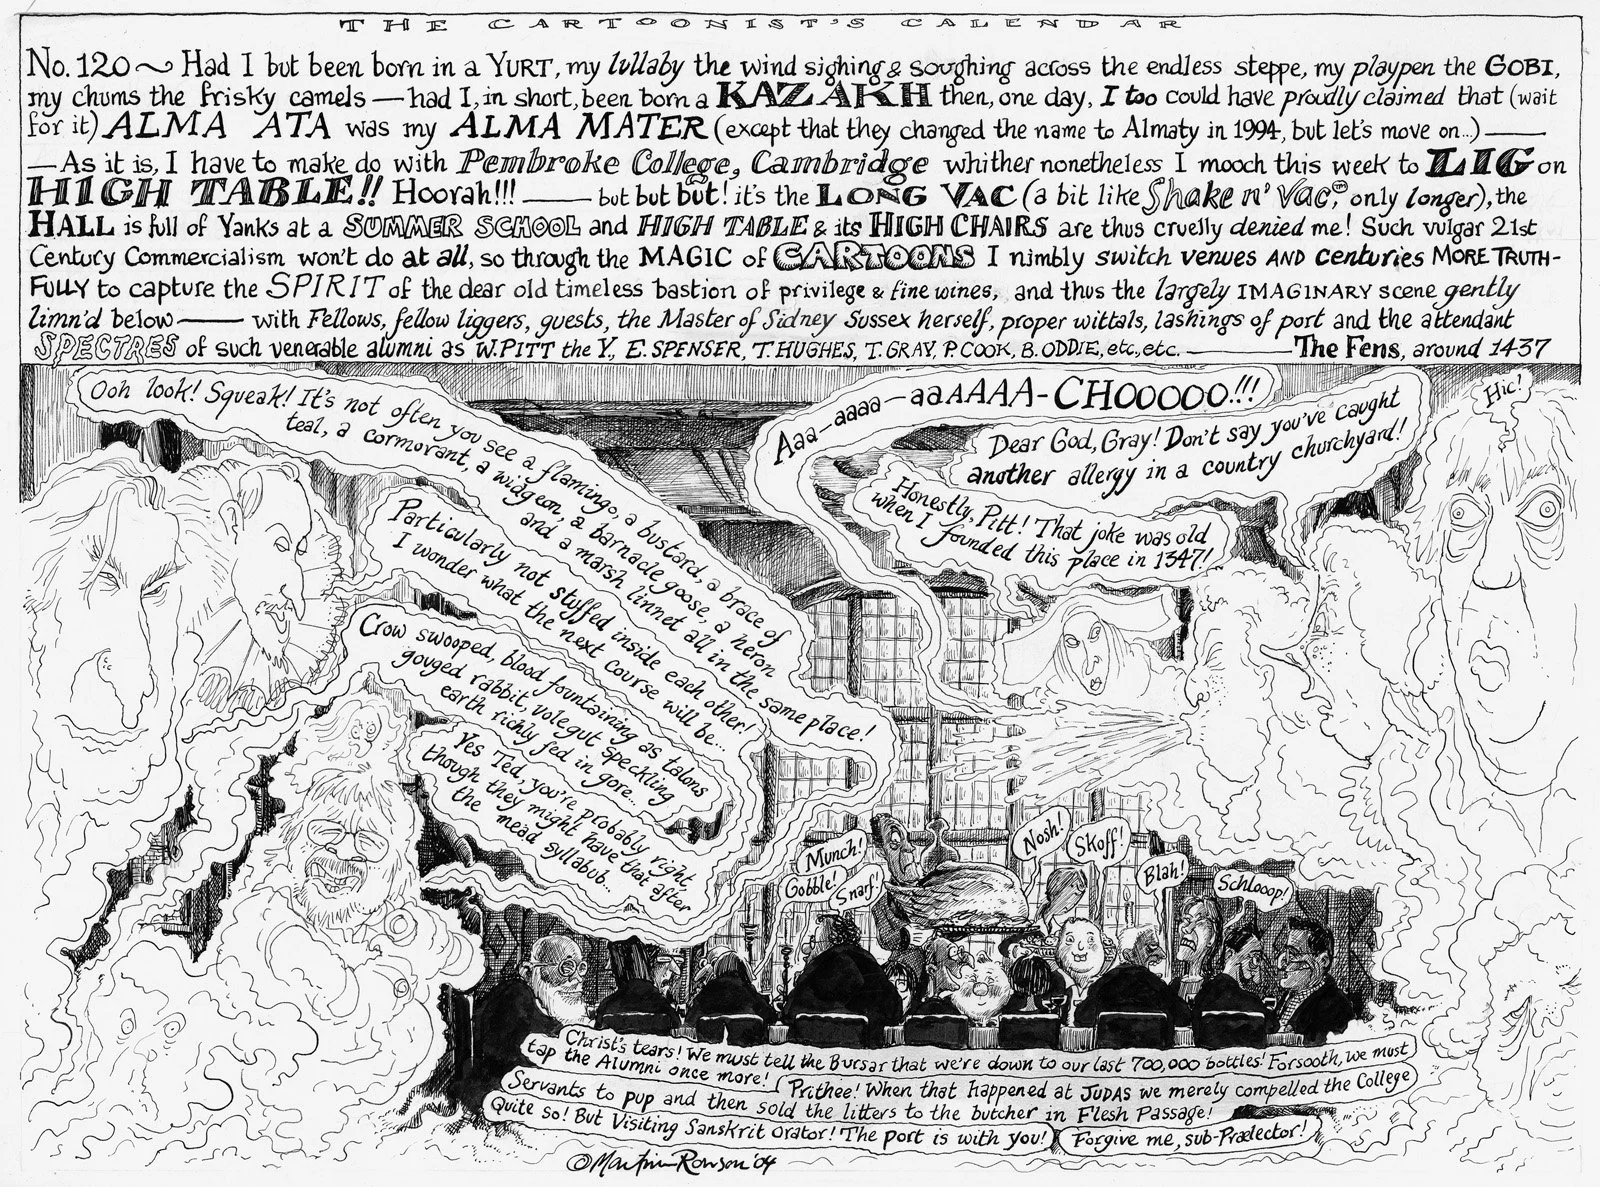 THE CARTOONIST'S CALENDAR
No. 120 ~ Had I but been born in a YURT, my lullaby the wind sighing & soughing across the endless steppe, my playpen the GOBI,
my chums the frisky camels — had I, in short, been born a KAZAKH then, one day, I too could have proudly claimed that (wait
for it) ALMA ATA was my ALMA MATER (except that they changed the name to Almaty in 1994, but let's move on...) ——
— As it is, I have to make do with Pembroke College, Cambridge whither nonetheless I mooch this week to LIG on
HIGH TABLE!! Hoorah!!! —— but but but! it's the LONG VAC (a bit like Shake n' Vac,™ only longer), the
HALL is full of Yanks at a SUMMER SCHOOL and HIGH TABLE & its HIGH CHAIRS are thus cruelly denied me! Such vulgar 21st
Century Commercialism won't do at all, so through the MAGIC of CARTOONS I nimbly switch venues AND centuries MORE TRUTH-
FULLY to capture the SPIRIT of the dear old timeless bastion of privilege & fine wines, and thus the largely IMAGINARY scene gently
limn'd below —— with Fellows, fellow liggers, guests, the Master of Sidney Sussex herself, proper wittals, lashings of port and the attendant
SPECTRES of such venerable alumni as W. PITT the Y., E. SPENSER, T. HUGHES, T. GRAY, P. COOK, B. ODDIE, etc., etc. —— The Fens, around 1437
Ooh look! Squeak! It's not often you see a flamingo, a bustard, a brace of
teal, a cormorant, a widgeon, a barnacle goose, a heron
and a marsh linnet all in the same place!
Particularly not stuffed inside each other!
I wonder what the next course will be...
Crow swooped, blood fountaining as talons
gouged rabbit, vole gut speckling
earth richly fed in gore...
Yes Ted, you're probably right,
though they might have that after
the mead syllabub...
Aaa-aaaa-aaAAAA-CHOOOOO!!!
Dear God, Gray! Don't say you've caught
another allergy in a country churchyard!
Honestly, Pitt! That joke was old
when I founded this place in 1347!
Hic!
Munch!
Gobble!
Snarf!
Nosh!
Skoff!
Blah!
Schlooop!
Christ's tears! We must tell the Bursar that we're down to our last 700,000 bottles! Forsooth, we must
tap the Alumni once more!
Prithee! When that happened at JUDAS we merely compelled the College
Servants to pup and then sold the litters to the butcher in Flesh Passage!
Quite so! But Visiting Sanskrit Orator! The port is with you!
Forgive me, sub-Prælector!
© Martin Rowson '04